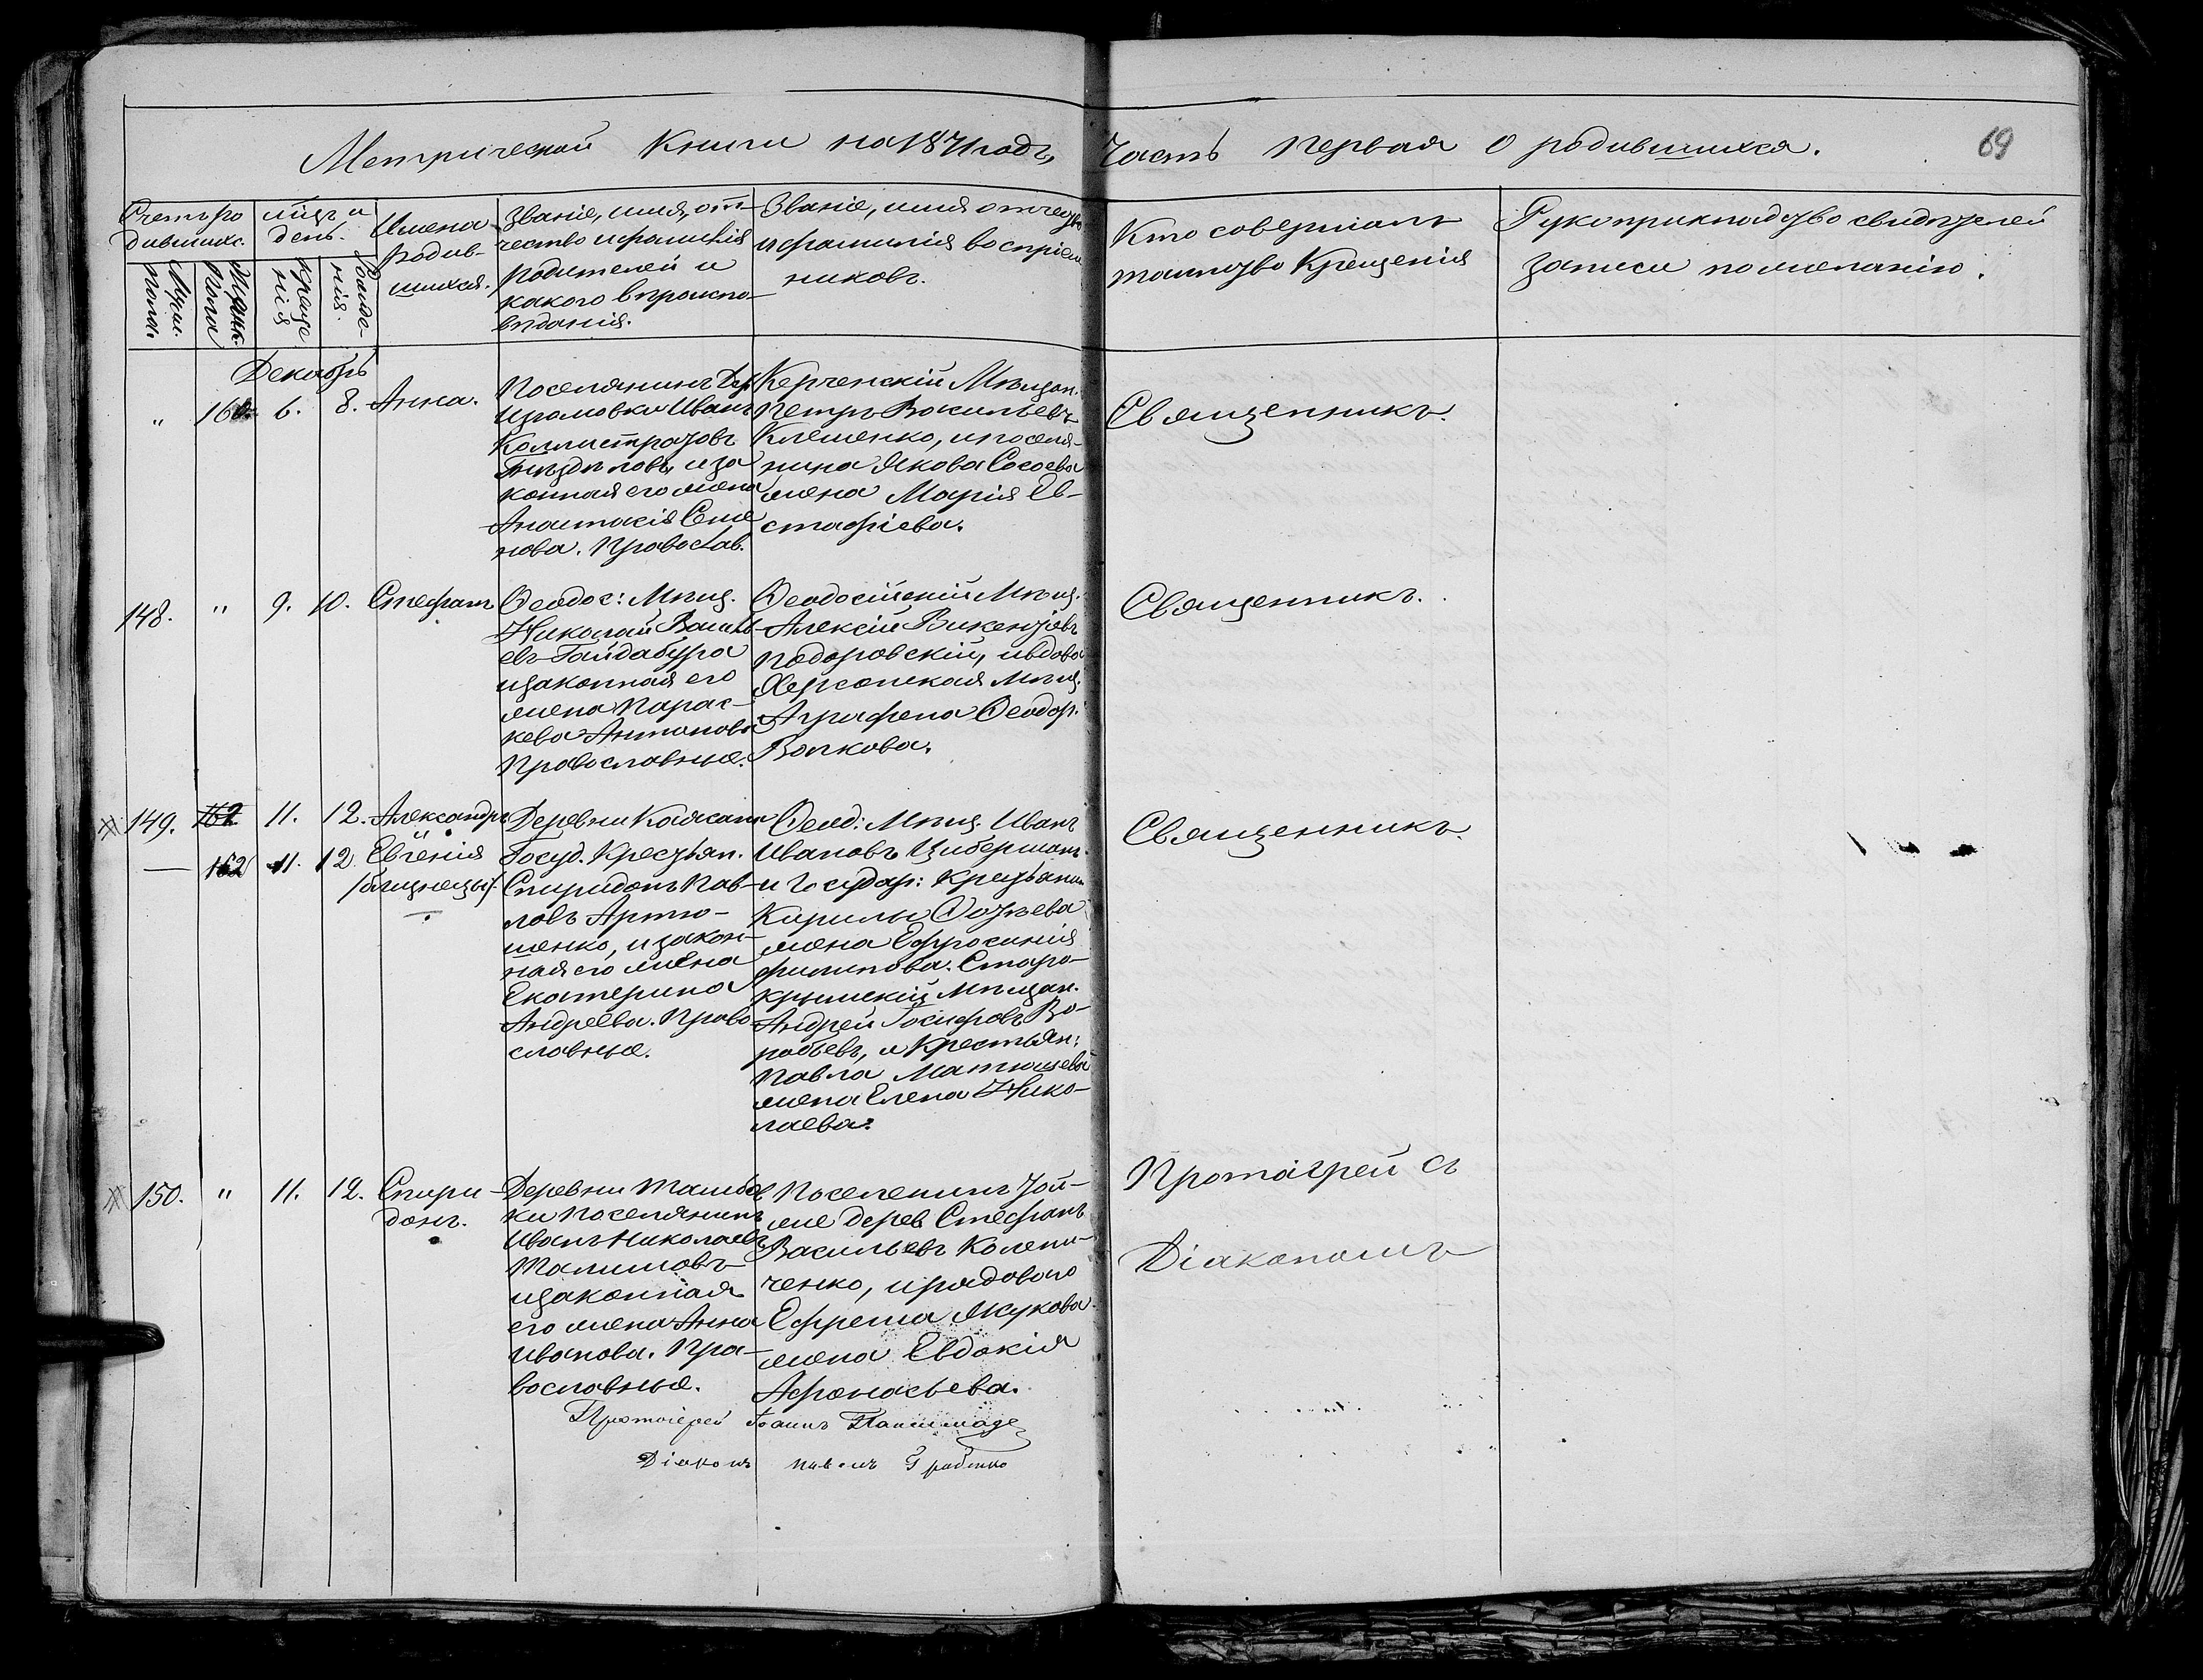 Метрической Книги на 1871 годъ,
Часть Первая О родившихся.
69
Счетъ ро
дивших.
Муж.
пола.
Женск.
Пола
мѣцъ и
день.
креще
нія
Рожде-
нія.
Имена
родив-
шихся.
Званіе, имя, от-
чество и фамилія
родителей и
какого вѣроиспо-
вѣданія.
Званіе, имя отчество
и фамилія воспріем
никовъ.
Кто совершалъ
таинство Крещенія
Рукоприкладство свидѣтелей
записи по желанію.
Декабрь
" 6. 8. Анна.
Поселянинъ Дер.
Иванъ
Каллистратовъ
и за
конная его жена
Анастасія Семе
нова. Православ.
Керченскій Мѣщан.
Петръ Васильевъ
Клеменко, и поселя-
нина Якова Сосоева
жена Марія Ев-
стафіева.
Священникъ.
148. " 9. 10. Стефанъ
Ѳеодос: Мѣщ.
Николай Василь-
евъ Гайдабура
и законная его
жена Парас-
кева Антонова
Православные.
Ѳеодосійскій Мѣщ.
Алексій Викентіевъ
Подоровскій, и вдова
Херсонская Мѣщ.
Аграфена Ѳеодор.
Волкова.
Священникъ.
149. 162 11. 12. Александръ
— 162 11. 12 Евгенія
/близнецы/.
Деревни Коясана
Госуд. Крестьян.
Спиридонъ Пав-
ловъ Артю-
шенко, и закон-
ная его жена
Екатерина
Андреева. Право
славные.
Ѳеод: Мѣщ. Иванъ
Ивановъ Циберманъ.
и Государ: Крестьянин
Кирилы Ѳотѣева
жена Ефросинія
Филипова. Старо-
крымскій Мѣщан.
Андрей Іосифовъ Во-
робьевъ, и Крестьян:
Павла Матюшева
жена Елена Нико-
лаева.
Священникъ.
150. " 11. 12. Спири-
донъ.
Деревни Тамбов
ки поселянинъ
Иванъ Николаевъ
Талимовъ
и законная
его жена Анна
Иванова. Пра-
вославные.
Поселенинъ Той-
ме дерев Стефанъ
Васильевъ Колени-
ченко, и рядового
Ефрема Жукова
жена Евдокія
Афонасьева.
Протоіерей съ
Діакономъ
Протоіерей Іоаннъ
Діаконъ Павелъ Грабенко